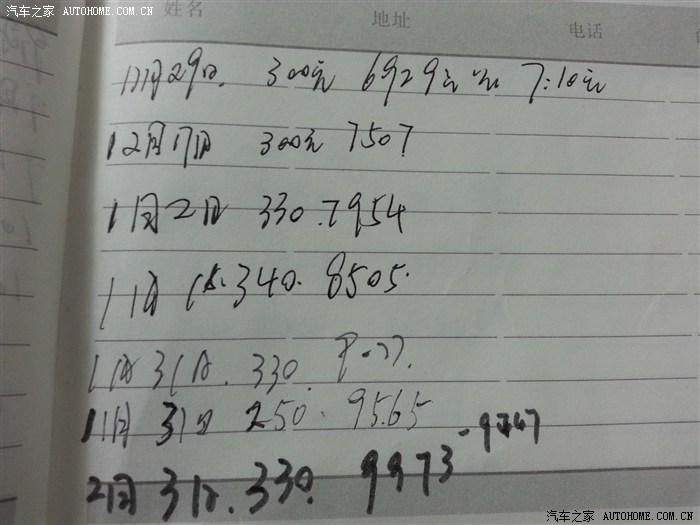 汽车之家 AUTOHOME.COM.CN
姓名 地址 电话
11月29日. 300元 6929 7:10元
12月17日 300元 7507
1月2日 330.7954
1月15.340.8505.
1月31日.330.
11月31日 250.9565
2月3日.330.9973-9747
汽车之家 AUTOHOME.COM.CN